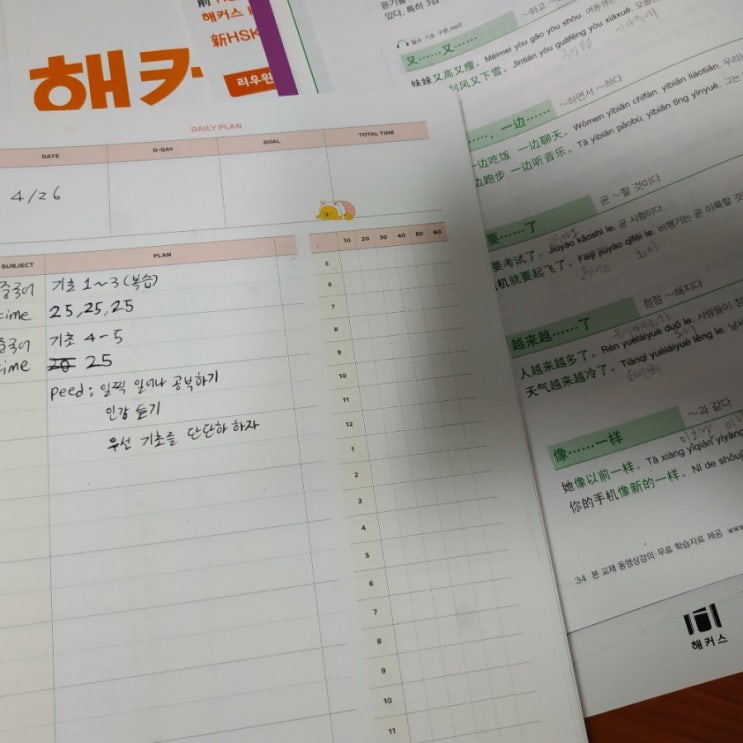 해커스
新HSK
리우윈
해커
DAILY PLAN
DATE
D-DAY
GOAL
TOTAL TIME
4/26
10 20 30 40 50 60
SUBJECT
PLAN
중국어
기초 1~3 (복습)
time
25, 25, 25
중국어
기초 4-5
time
20 25
peed : 일찍 일어나 공부하기
인강 듣기
우선 기초를 단단하 하자
5
6
7
8
9
10
11
12
1
2
3
4
5
6
7
8
9
10
11
있다. 특히 3급
필수 기초 구문.mp3
又……又……
~하고
妹妹又高又瘦。 Mèimei yòu gāo yòu shòu.
刮风又下雪。 Jīntiān yòu guāfēng yòu xiàxuě.
一边……
~하면서 ~하다
边吃饭, 一边聊天。 Wǒmen yìbiān chīfàn, yìbiān liáotiān.
边跑步, 一边听音乐。 Tā yìbiān pǎobù, yìbiān tīng yīnyuè. 그는
要……了
곧 ~할 것이다
要考试了。 Jiùyào kǎoshì le. 곧 시험이다.
机就要起飞了。 Fēijī jiùyào qǐfēi le. 비행기는 곧 이륙할 것
越来越……了
점점 ~해지다
人越来越多了。 Rén yuèláiyuè duō le. 사람들이 점
天气越来越冷了。 Tiānqì yuèláiyuè lěng le. 날씨
像……一样
~과 같다
她像以前一样。 Tā xiàng yǐqián yíyàng.
你的手机像新的一样。 Nǐ de shǒujī
34 본 교재 동영상강의·무료 학습자료 제공 www
해커스